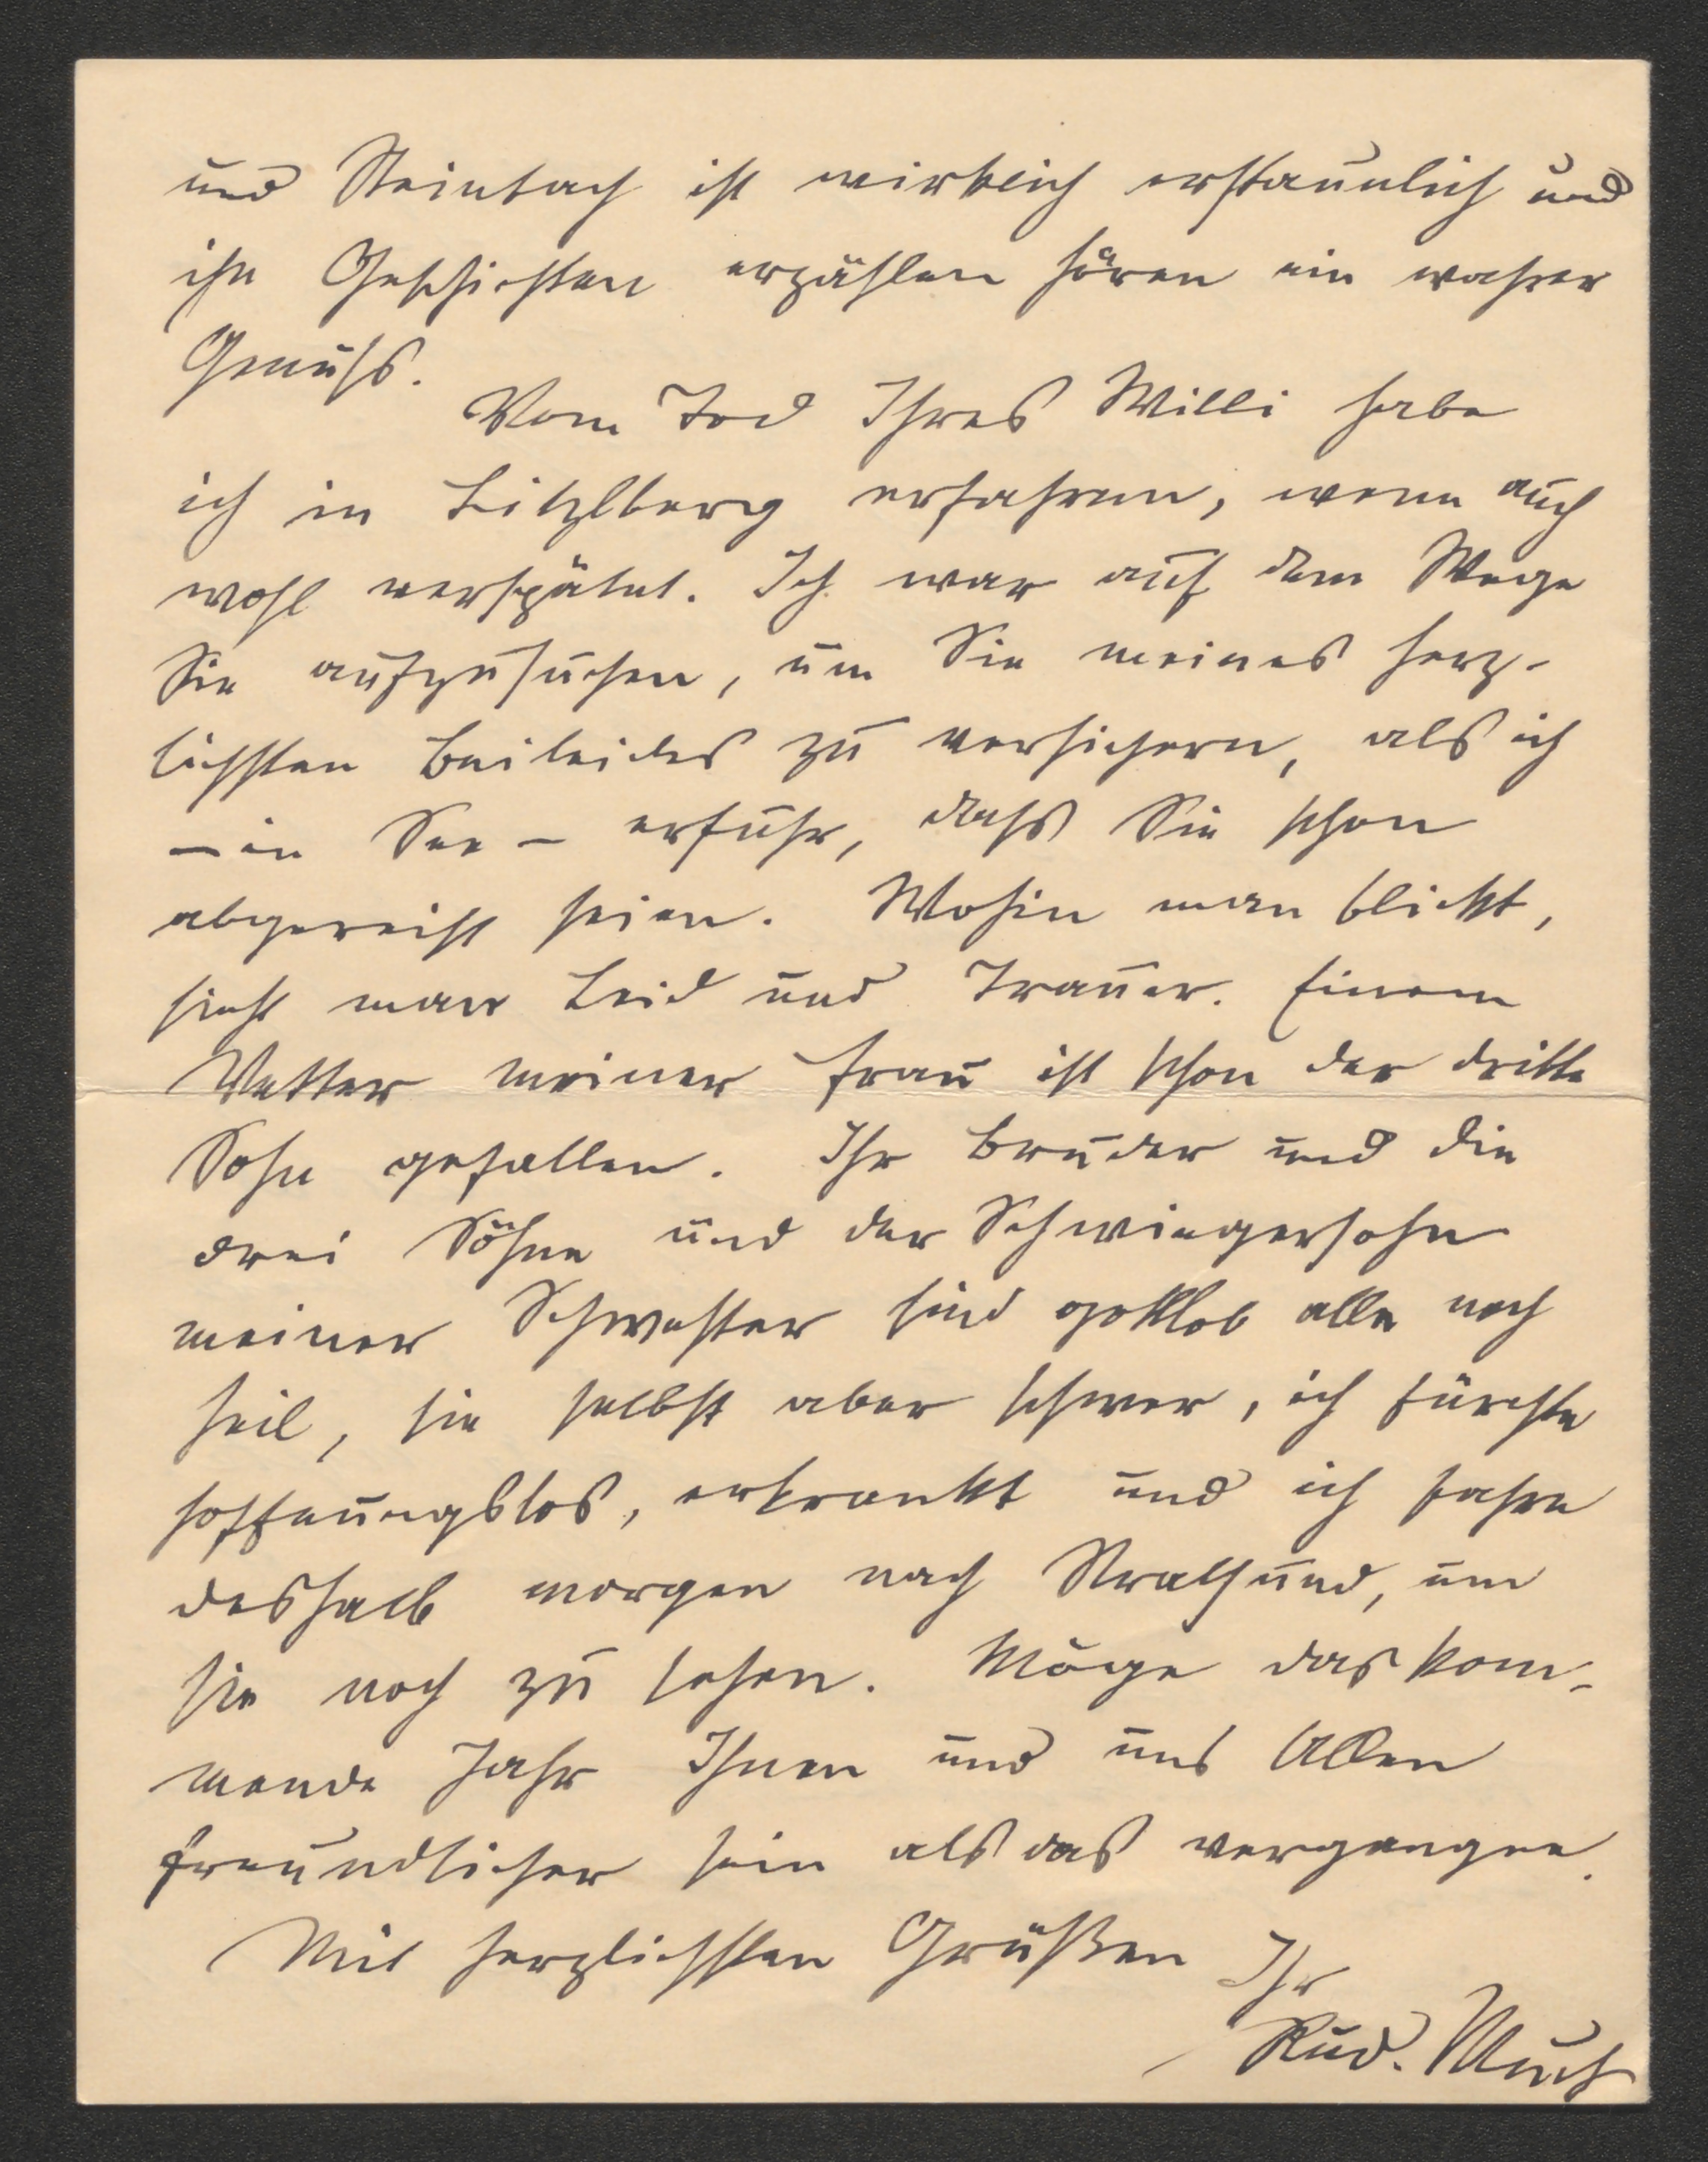 und Steinbach ist wirklich erstaunlich und
ihn Geschichten erzählen hören ein wahrer
Genuss.
Vom Tod Ihres Willi habe
ich in Litzlberg erfahren, wenn auch
wohl verspätet. Ich war auf dem Wege
Sie aufzusuchen, um Sie meines herz-
lichsten Beileides zu versichern, als ich
– in See – erfuhr, dass Sie schon
abgereist seien. Wohin man blickt,
sieht man Leid und Trauer. Einem
Vetter meiner Frau ist schon der dritte
Sohn gefallen. Ihr Bruder und die
drei Söhne und der Schwiegersohn
meiner Schwester sind gottlob alle noch
heil, sie selbst aber schwer, ich fürchte
hoffnungslos, erkrankt und ich fahre
deshalb morgen nach Stralsund, um
sie noch zu sehen. Möge das kom-
mende Jahr Ihnen und uns Allen
freundlicher sein als das vergangne.
Mit herzlichsten Grüßen Ihr
Rud. Much